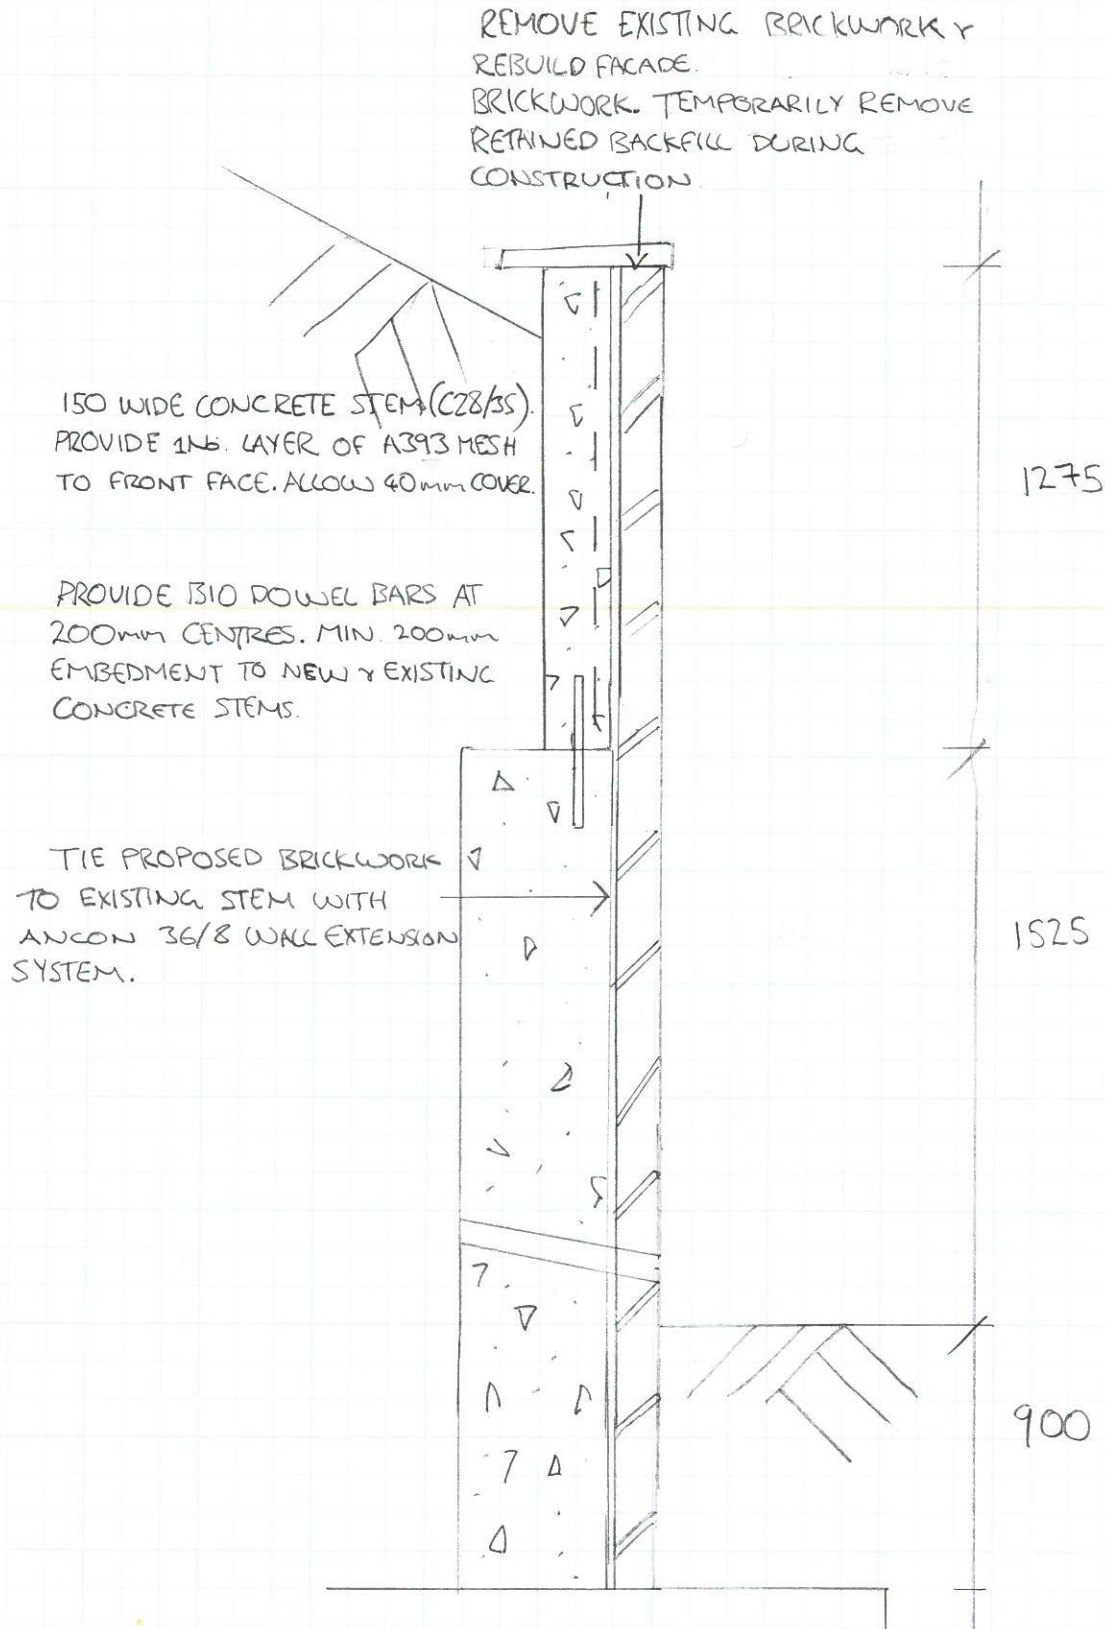 REMOVE EXISTING BRICKWORK &
REBUILD FACADE.
BRICKWORK. TEMPORARILY REMOVE
RETAINED BACKFILL DURING
CONSTRUCTION
150 WIDE CONCRETE STEM (C28/35).
PROVIDE 1No. LAYER OF A393 MESH
TO FRONT FACE. ALLOW 40mm COVER.
1275
PROVIDE B10 DOWEL BARS AT
200mm CENTRES. MIN. 200mm
EMBEDMENT TO NEW & EXISTING
CONCRETE STEMS.
TIE PROPOSED BRICKWORK
TO EXISTING STEM WITH
ANCON 36/8 WALL EXTENSION
SYSTEM.
1525
900